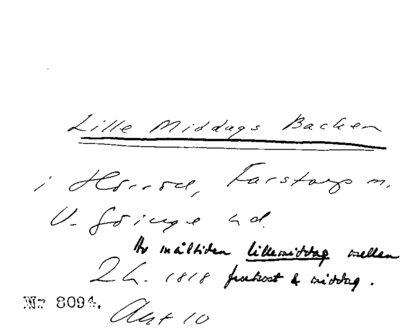 Lille Middags Backen
i Hörröd, Farstorps sn.
V. Göinge hd.
Av måltiden lillemiddag mellan
Lh. 1818 frukost & middag.
Nr 8094. Akt 10